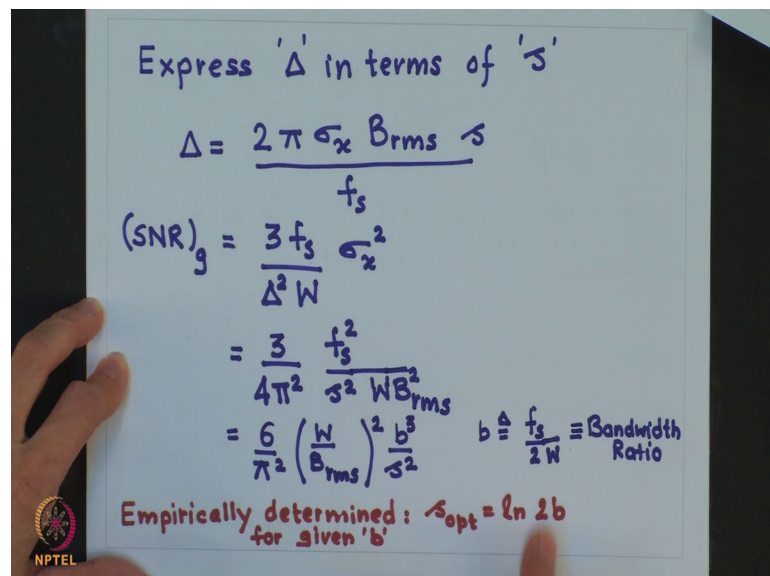 Express 'Δ' in terms of 's'
Δ = 2 π σx Brms s / fs
(SNR)g = 3 fs / Δ² W σx²
= 3 / 4π² fs² / s² W B²rms
= 6 / π² (W / Brms)² b³ / s²   b ≜ fs / 2W ≡ Bandwidth Ratio
Empirically determined : sopt = ln 2b
for given 'b'
NPTEL